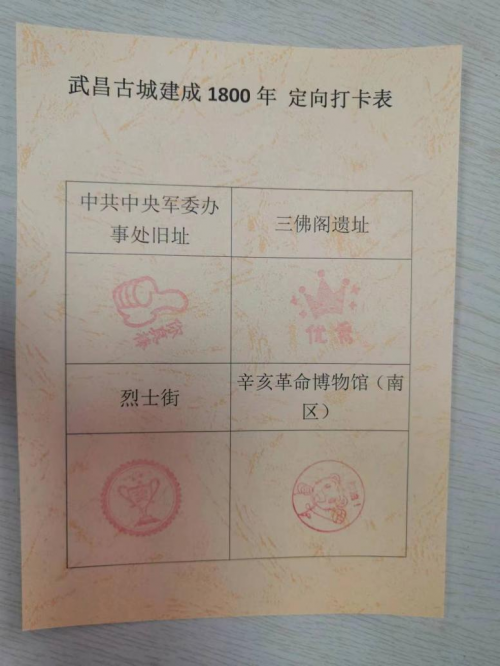 武昌古城建成 1800 年 定向打卡表
中共中央军委办
事处旧址
三佛阁遗址
优秀
烈士街
辛亥革命博物馆（南
区）